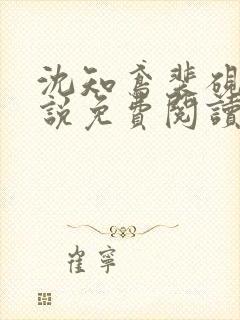 沈知鸢裴砚
說免費閱讀
崔寧